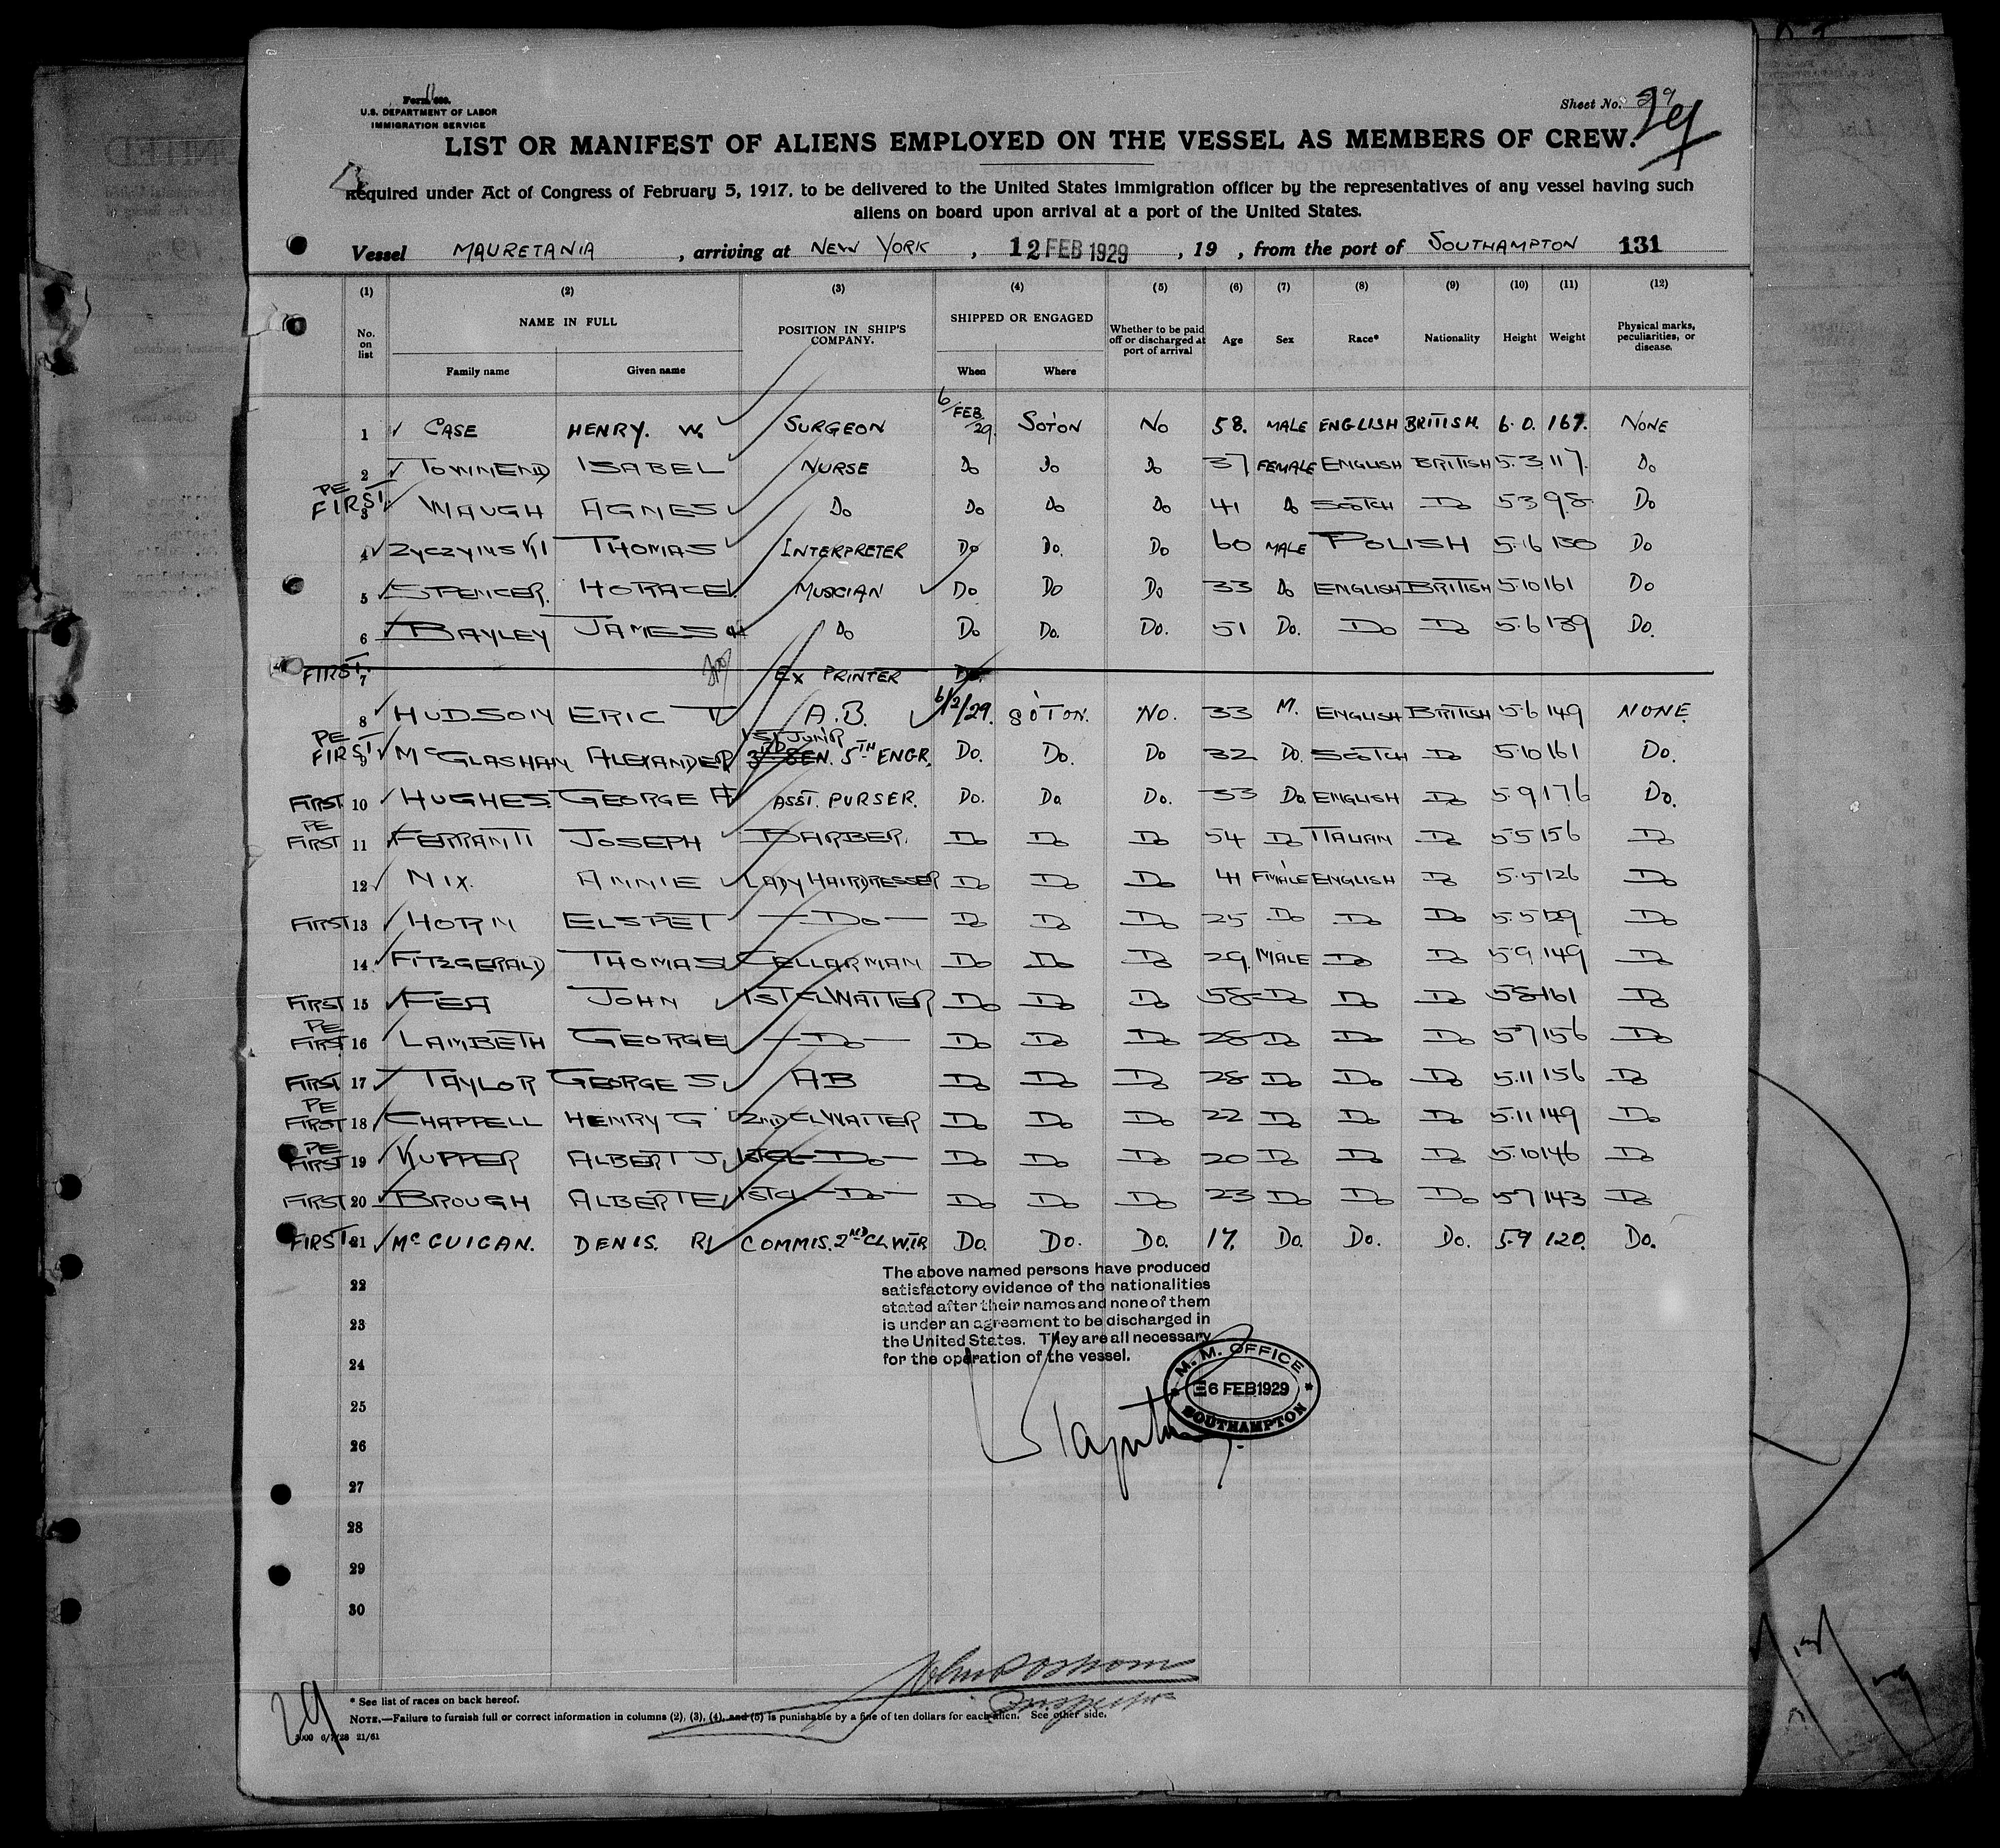 Form 689.
U.S. DEPARTMENT OF LABOR
IMMIGRATION SERVICE
Sheet No. 29
29
LIST OR MANIFEST OF ALIENS EMPLOYED ON THE VESSEL AS MEMBERS OF CREW.
Required under Act of Congress of February 5, 1917, to be delivered to the United States immigration officer by the representatives of any vessel having such
aliens on board upon arrival at a port of the United States.
Vessel MAURETANIA, arriving at NEW YORK, 12 FEB 1929, 19 , from the port of SOUTHAMPTON 131
(1) (2) (3) (4) (5) (6) (7) (8) (9) (10) (11) (12)
No. on list NAME IN FULL Family name Given name POSITION IN SHIP'S COMPANY. SHIPPED OR ENGAGED When Where Whether to be paid off or discharged at port of arrival Age Sex Race* Nationality Height Weight Physical marks, peculiarities, or disease.
1 CASE HENRY. W. SURGEON 6/FEB/29. SO'TON NO 58. MALE ENGLISH BRITISH. 6.0. 167. NONE
2 TOWNEND ISABEL NURSE Do Do Do 37 FEMALE ENGLISH BRITISH 5.3 117. Do
PE FIRST 3 WAUGH AGNES Do Do Do Do 41 Do SCOTCH Do 5.3 98. Do
4 ZYCZYNSKI THOMAS INTERPRETER Do Do. Do 60 MALE POLISH 5.6 130 Do
5 SPENCER. HORACE. MUSCIAN Do Do Do 33 Do ENGLISH BRITISH 5.10 161 Do
6 BAYLEY JAMES Do Do Do. Do. 51 Do. Do Do 5.6 139 Do.
FIRST. 7 EX PRINTER Do.
8 HUDSON ERIC T A.B. 6/2/29. SO'TON. NO. 33 M. ENGLISH BRITISH 5.6 149 NONE
PE FIRST 9 McGLASHAN ALEXANDER 1ST JUNIOR 3RD SEN. 5TH ENGR. Do. Do. Do 32 Do. SCOTCH Do 5.10 161 Do.
FIRST 10 HUGHES. GEORGE A ASST. PURSER. Do. Do. Do. 33 Do. ENGLISH Do 5.9 176 Do.
PE FIRST 11 FERRANTI JOSEPH BARBER. Do Do Do 54 Do ITALIAN Do 5.5 156 Do
12 NIX. ANNIE LADY HAIRDRESSER Do Do Do 41 FEMALE ENGLISH Do 5.5 126 Do
FIRST 13 HORN ELSPET — Do — Do Do Do 25 Do Do Do 5.5 129 Do
14 FITZGERALD THOMAS CELLARMAN Do Do Do 29. MALE Do Do 5.9 149 Do
FIRST 15 FEA JOHN 1ST CL WAITER Do Do Do 58 Do Do Do 5.8 161 Do
PE FIRST 16 LAMBETH GEORGE — Do — Do Do Do 28 Do Do Do 5.7 156 Do
FIRST 17 TAYLOR GEORGE S. AB Do Do Do 28 Do Do Do 5.11 156 Do
PE FIRST 18 CHAPPELL HENRY G 2ND CL WAITER Do Do Do 22 Do Do Do 5.11 149 Do
PE FIRST 19 KUPPER ALBERT J. 1ST CL — Do — Do Do Do 20 Do Do Do 5.10 146 Do
FIRST 20 BROUGH ALBERT E 1ST CL — Do — Do Do Do 23 Do Do Do 5.7 143 Do
FIRST 21 McGUIGAN. DENIS. R. COMMIS. 2ND CL WTR Do. Do. Do. 17. Do. Do. Do. 5.9 120. Do.
22
The above named persons have produced
satisfactory evidence of the nationalities
stated after their names and none of them
is under an agreement to be discharged in
the United States. They are all necessary
for the operation of the vessel.
23
24
M. M. OFFICE
6 FEB 1929
SOUTHAMPTON
25
26
27
28
29
30
Inspector
* See list of races on back hereof.
NOTE.—Failure to furnish full or correct information in columns (2), (3), (4), and (5) is punishable by a fine of ten dollars for each alien. See other side.
29
3000 6/7/28 21/61